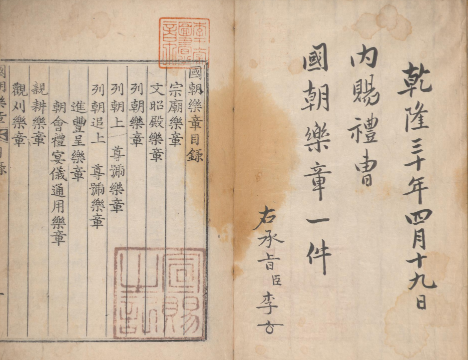 乾隆三十年四月十九日
內賜禮曺
國朝樂章一件
右承旨臣李
國朝樂章目錄
宗廟樂章
文昭殿樂章
列朝樂章
列朝上 尊號樂章
列朝追上 尊號樂章
進豐呈樂章
朝會禮宴儀通用樂章
親耕樂章
觀刈樂章
國朝樂章 目錄
宣賜之記